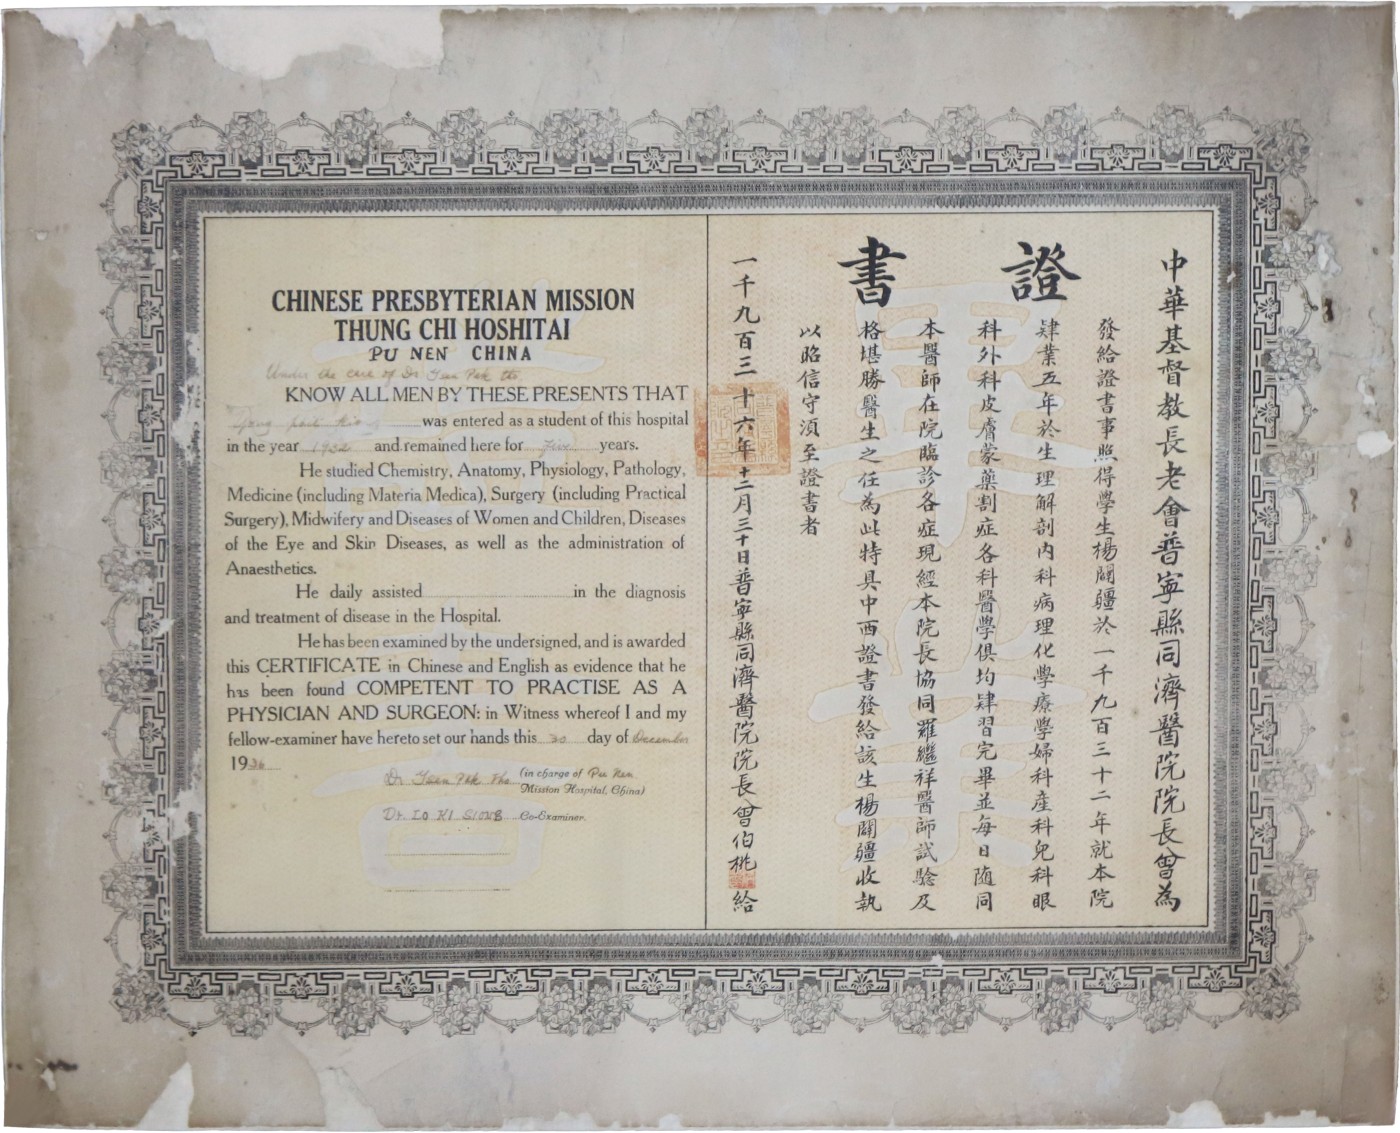 CHINESE PRESBYTERIAN MISSION
THUNG CHI HOSHITAI
PU NEN CHINA
Under the care of Dr
KNOW ALL MEN BY THESE PRESENTS THAT
was entered as a student of this hospital
in the year 1932 and remained here for five years.
He studied Chemistry, Anatomy, Physiology, Pathology,
Medicine (including Materia Medica), Surgery (including Practical
Surgery), Midwifery and Diseases of Women and Children, Diseases
of the Eye and Skin Diseases, as well as the administration of
Anaesthetics.
He daily assisted in the diagnosis
and treatment of disease in the Hospital.
He has been examined by the undersigned, and is awarded
this CERTIFICATE in Chinese and English as evidence that he
has been found COMPETENT TO PRACTISE AS A
PHYSICIAN AND SURGEON: in Witness whereof I and my
fellow-examiner have hereto set our hands this 30 day of December
1936
Dr (in charge of Pu Nen
Mission Hospital, China)
Dr. LO KI SIONG Co-Examiner.
證書
中華基督教長老會普寧縣同濟醫院院長曾為
發給證書事照得學生楊闢疆於一千九百三十二年就本院
肄業五年於生理解剖內科病理化學療學婦科產科兒科眼
科外科皮膚蒙藥割症各科醫學俱均肄習完畢並每日随同
本醫師在院臨診各症現經本院長協同羅繼祥醫師試驗及
格堪勝醫生之任為此特具中西證書發給該生楊闢疆收執
以昭信守須至證書者
一千九百三十六年十二月三十日普寧縣同濟醫院院長曾伯桃給
畢業